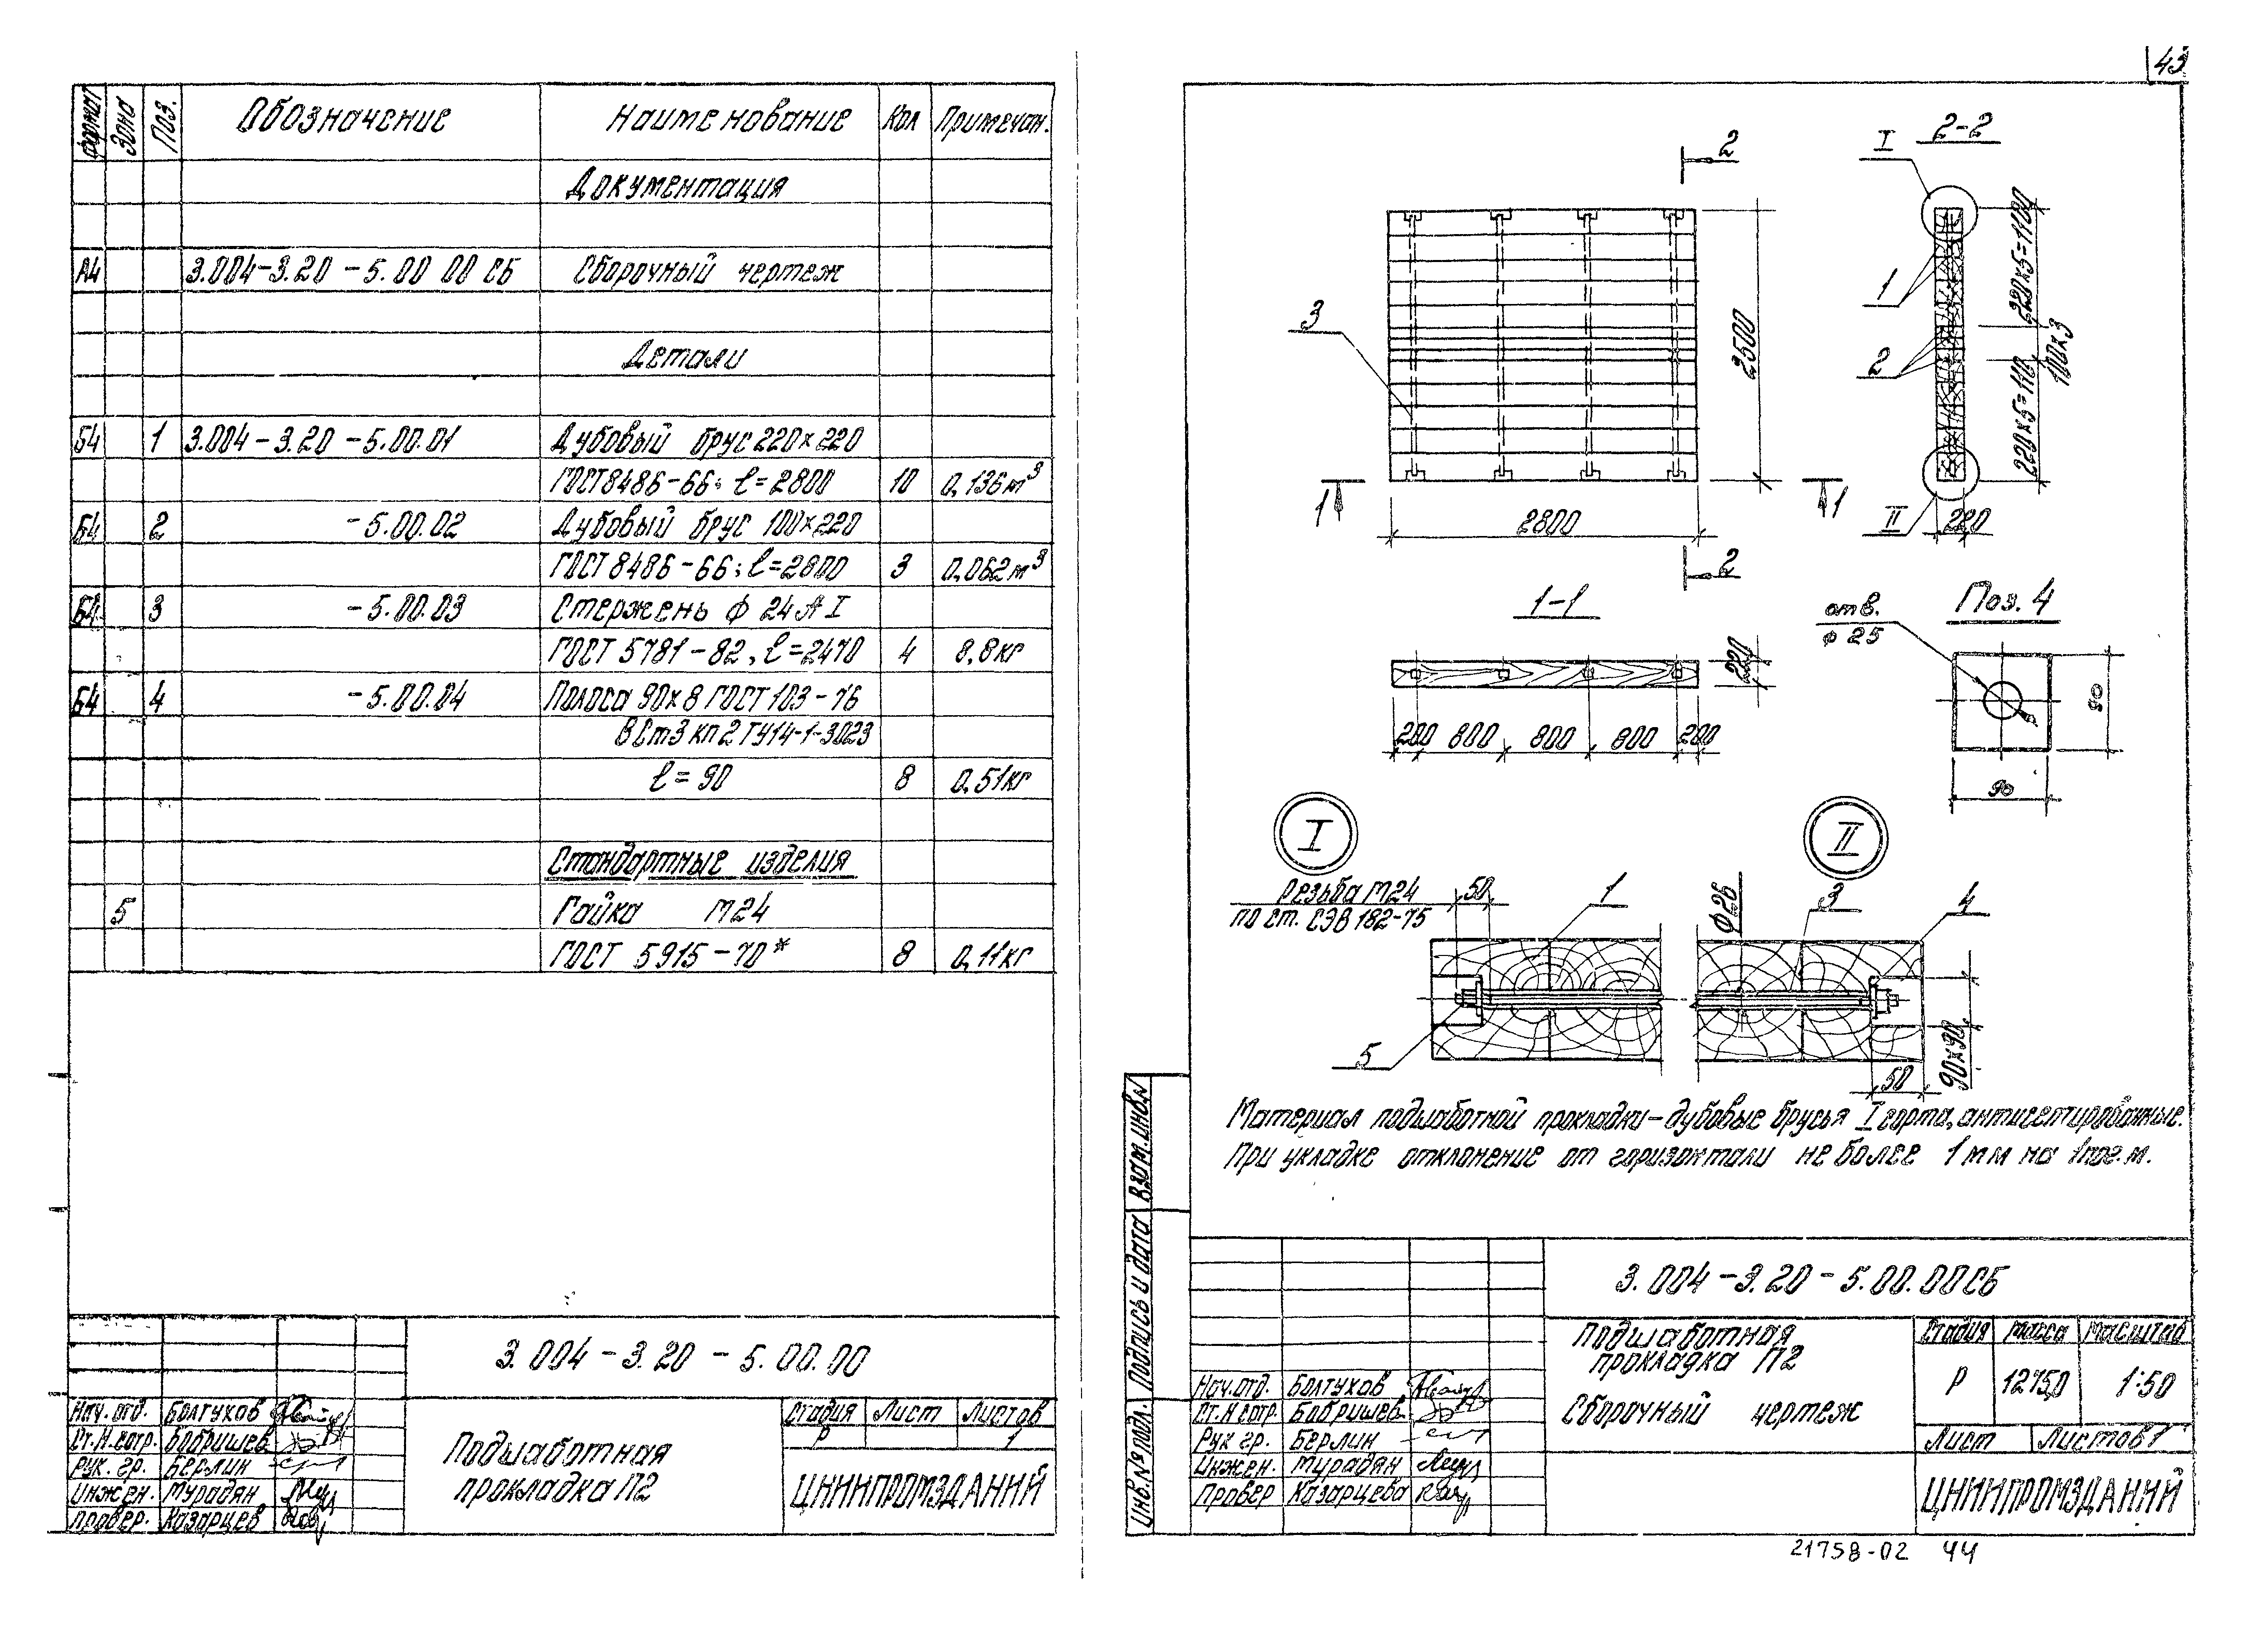 43
Формат Зона Поз. Обозначение Наименование Кол Примечан.
Документация
А4 3.004-3.20-5.00 00 СБ Сборочный чертеж
Детали
Б4 1 3.004-3.20-5.00.01 Дубовый брус 220×220
ГОСТ 8486-66; ℓ=2800 10 0,136м³
Б4 2 -5.00.02 Дубовый брус 100×220
ГОСТ 8486-66; ℓ=2800 3 0,062м³
Б4 3 -5.00.03 Стержень ф 24 А I
ГОСТ 5781-82, ℓ=2470 4 8,8кг
Б4 4 -5.00.04 Полоса 90×8 ГОСТ 103-76
ВСт3 кп2 ТУ14-1-3023
ℓ=90 8 0,51кг
Стандартные изделия
5 Гайка М24
ГОСТ 5915-70* 8 0,11кг
3.004-3.20-5.00.00
Нач. отд. Болтухов
Ст.Н.сотр. Бобришев
Рук. гр. Берлин
Инжен. Мурадян
Провер. Казарцев
Подшаботная
прокладка П2
Стадия Лист Листов
Р 1
ЦНИИПРОМЗДАНИЙ
2
2
3
2500
2800
1
1
2-2
I
1
2
II
220×5=1100
100×3
220×5=110
220
1-1
220
200 800 800 800 200
отв.
ф 25
Поз. 4
90
90
I
II
Резьба М24
по ст. СЭВ 182-75
50
1
ф26
3
4
5
50
90×90
Материал подшаботной прокладки-дубовые брусья I сорта, антисептированные.
При укладке отклонение от горизонтали не более 1мм на 1пог.м.
Взам. инв.№
Подпись и дата
Инв.№ подл.
3.004-3.20-5.00.00СБ
Нач.отд. Болтухов
Ст.Н.сотр. Бобришев
Рук гр. Берлин
Инжен. Мурадян
Провер Казарцева
Подшаботная
прокладка П2
Сборочный чертеж
Стадия Масса Масштаб
Р 1275,0 1:50
Лист Листов 1
ЦНИИПРОМЗДАНИЙ
21758-02 44